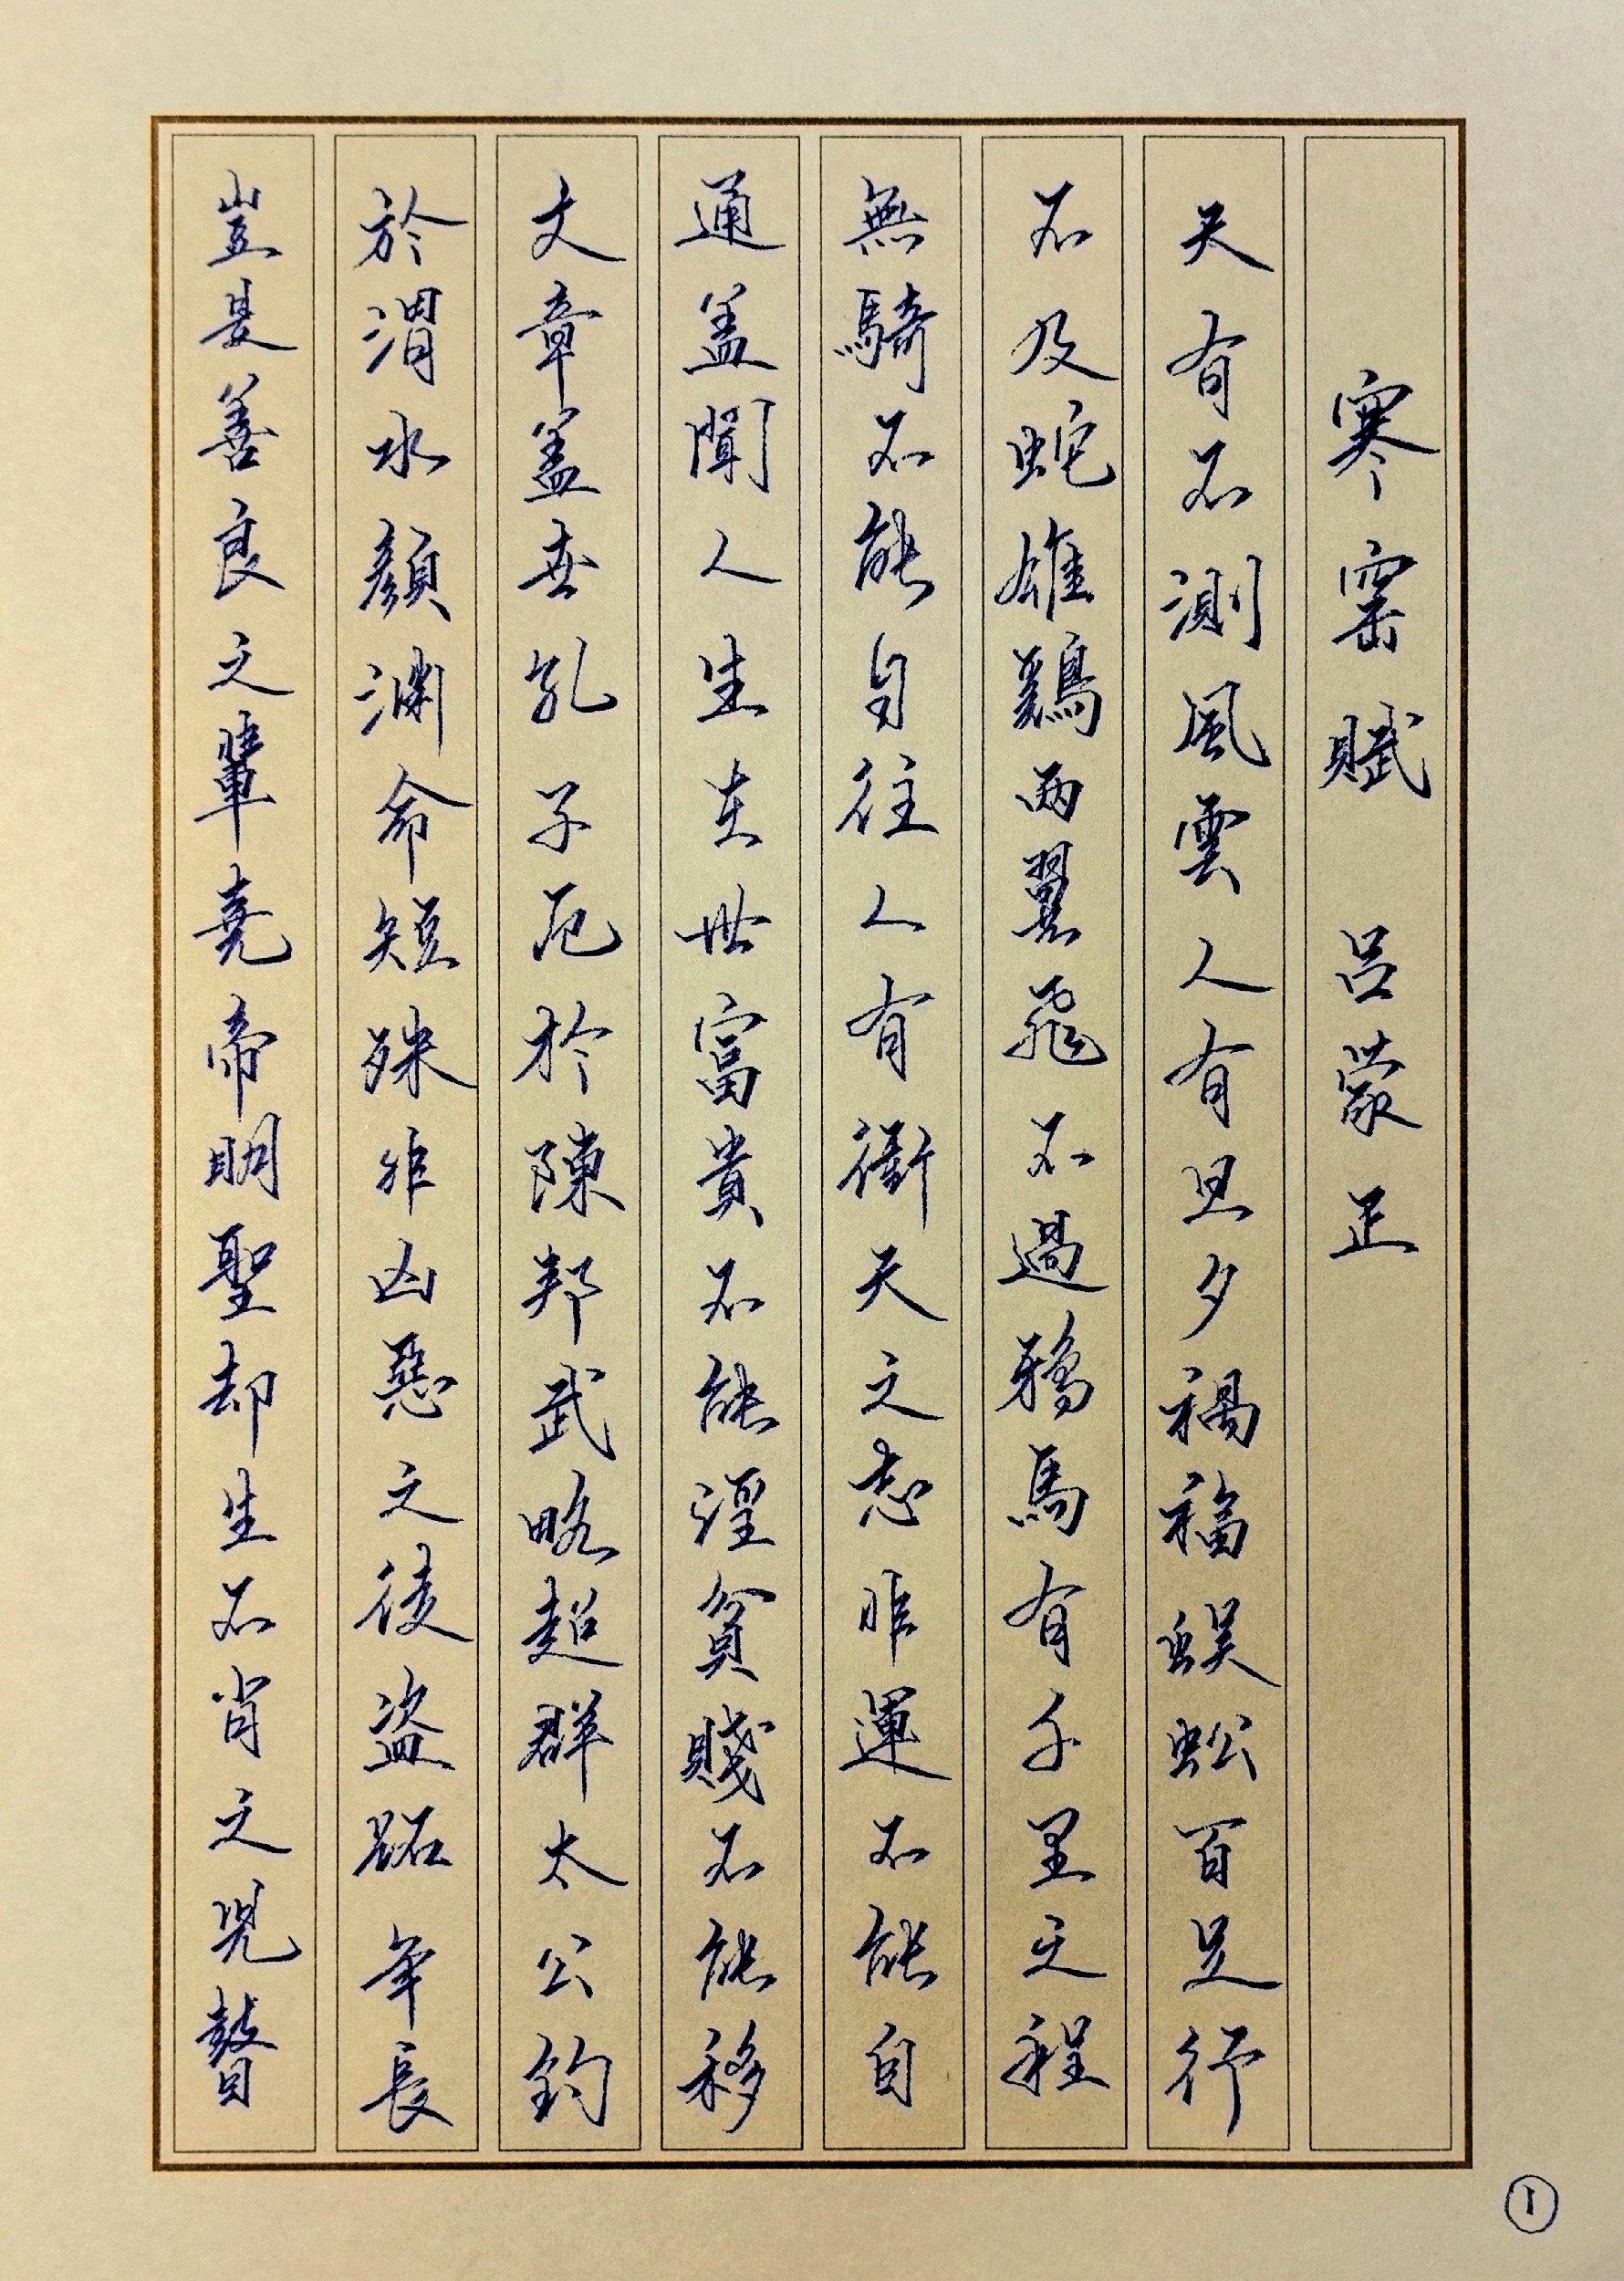 寒窑賦 呂蒙正
天有不測風雲人有旦夕禍福蜈蚣百足行
不及蛇雄鷄兩翼飛不過鴉馬有千里之程
無騎不能自往人有衝天之志非運不能自
通盖聞人生在世富貴不能淫貧賤不能移
文章盖世孔子厄於陳邦武略超群太公釣
於渭水顏渊命短殊非凶惡之徒盗跖年長
豈是善良之輩堯帝明聖却生不肖之児瞽
1